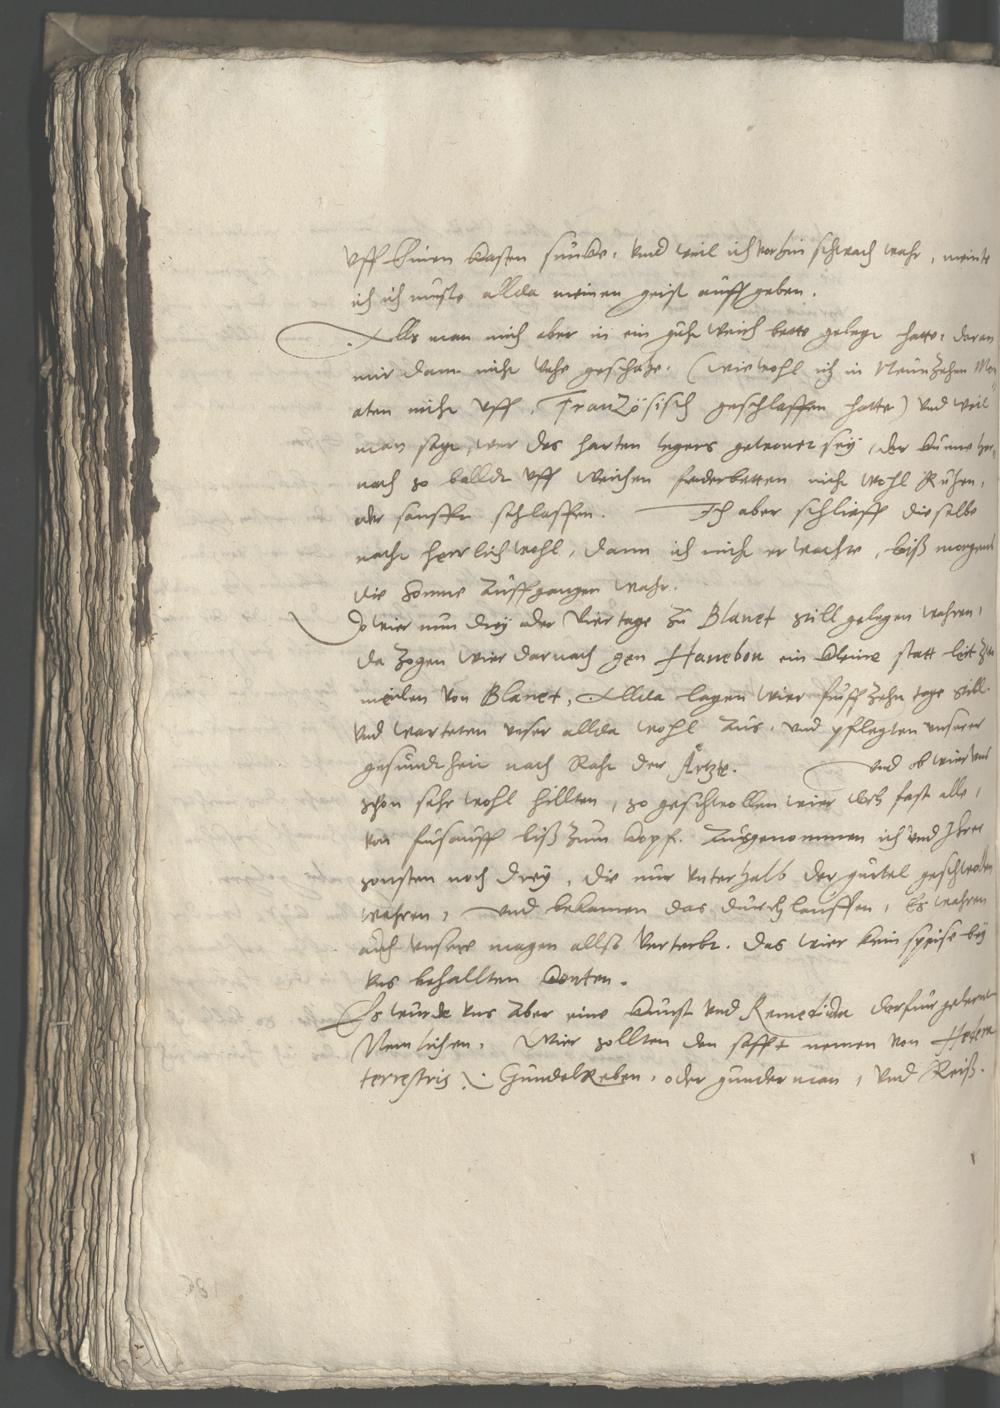 uff Einen kasten sunke. und weil ich vorhin schwach wahr, meinte
ich ich müste allda meinen geist auffgeben.
Alls man mich aber in ein guht weich bette gelegt hatte, daran
mir dann nicht wehe geschahe. (wiewohl ich in Neünzehen Mon
aten nicht uff, Französisch geschlaffen hatte) und weil
man sagt, wer des harten legers gewonet sey, der künne her
nach so balldt uff weichen federbetten nicht wohl Ruhen,
oder sanffte schlaffen. Ich aber schlieff dieselbe
nacht herrlich wohl, dann ich nicht erwachte, biß morgends
die Sonne auffgangen wahr.
Do wier nun drey oder vier tage zu Blauet still gelegen wahren,
da zogen wier darnach gen Hanebon ein kleine statt leit zwo
meilen von Blauet, Allda lagen wier fuffzehn tage still.
und warteten unser allda wohl aus. und pflegten unserer
gesundtheit nach Raht der Ärtzte. und ob wier uns
schon sehr wohl hillten, so geschwollen wier doch fast alle,
von füs auff biß zum kopf. Ausgenommen ich und Ihrer
sonsten noch drey, die nur unterhalb der gürtel geschwollen
wahren, und bekamen das durchlauffen, Es wahren
auch unsere magen allso verterbt. das wier kein speise bey
uns behallten konten.
Es wurde uns aber eine kunst und Remedida derfür gelernt
Nemlichen. Wier sollten den safft nemen von Hedera
terrestris .i. GundelReben, oder gunderman, und Reiß.